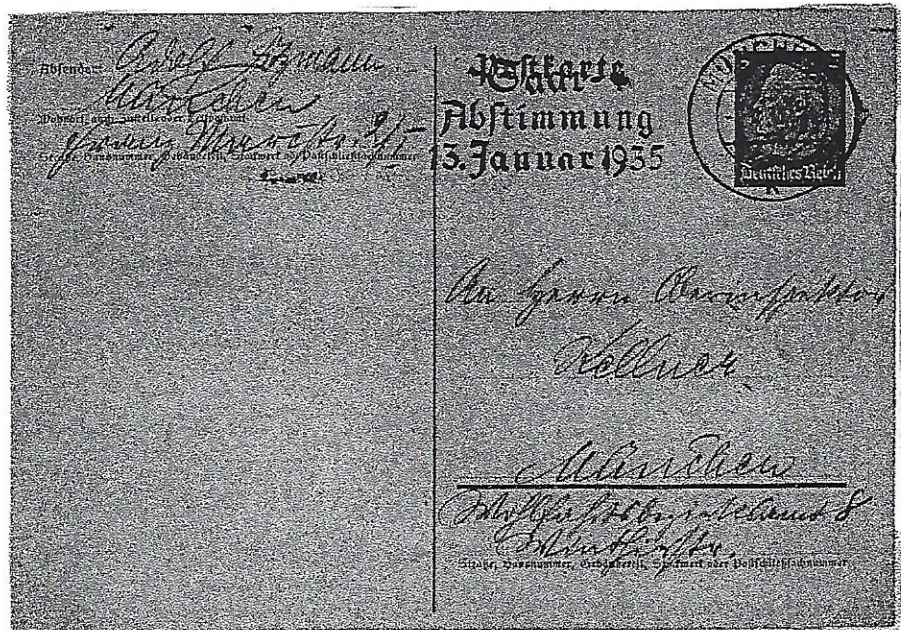 Absender: Adolf
München
Wohnort, auch Zustell- oder Leitpostamt
Franz Marcstr. 2/I
Straße, Hausnummer, Gebäudeteil, Stockwerk od. Postschließfachnummer
Postkarte
Saar
Abstimmung
13. Januar 1935
Deutsches Reich
An Herrn Oberinspektor
Kellner
München
Wohlfahrtsbezirksamt 8
Winthirstr.
Straße, Hausnummer, Gebäudeteil, Stockwerk oder Postschließfachnummer